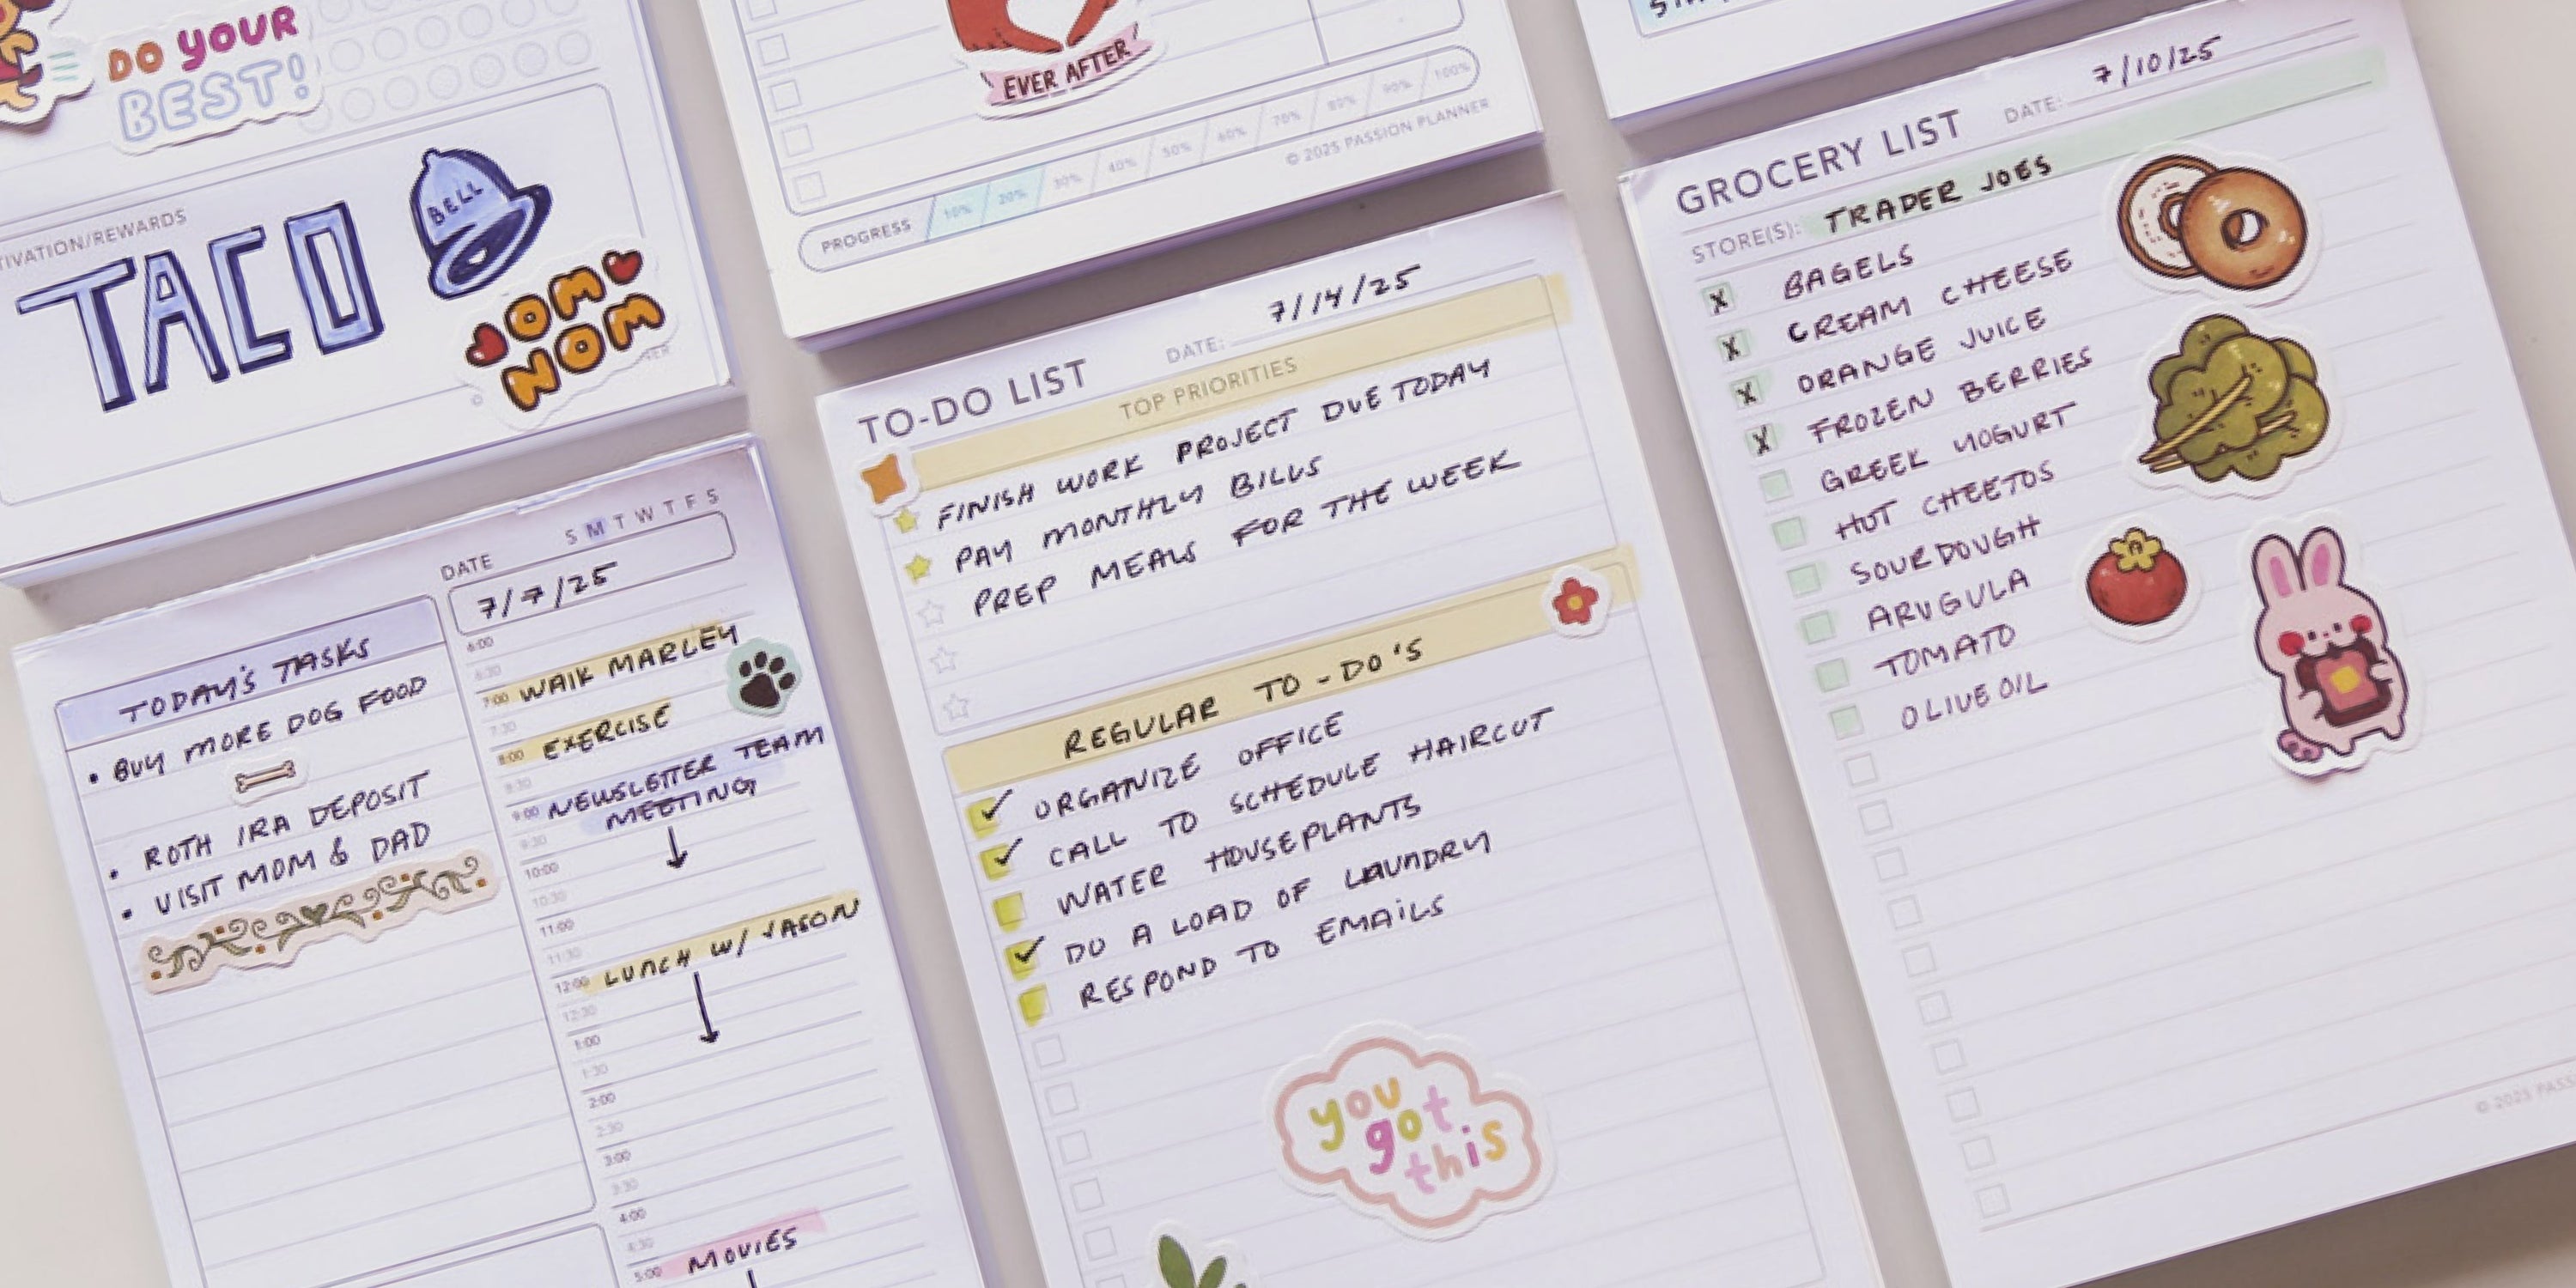 DO YOUR
BEST!
TACO
BELL
OM
NOM
EVER AFTER
PROGRESS 10% 20% 30% 40% 50% 60% 70% 80% 90% 100%
© 2025 PASSION PLANNER
DATE
S M T W T F S
7/7/25
TODAY'S TASKS
• BUY MORE DOG FOOD
• ROTH IRA DEPOSIT
• VISIT MOM & DAD
6:00
6:30
7:00 WALK MARLEY
7:30
8:00 EXERCISE
8:30
9:00 NEWSLETTER TEAM
MEETING
9:30
10:00
10:30
11:00
11:30
12:00 LUNCH W/ JASON
12:30
1:00
1:30
2:00
2:30
3:00
3:30
4:00
4:30
5:00 MOVIES
TO-DO LIST
DATE: 7/14/25
TOP PRIORITIES
FINISH WORK PROJECT DUE TODAY
PAY MONTHLY BILLS
PREP MEALS FOR THE WEEK
REGULAR TO-DO'S
ORGANIZE OFFICE
CALL TO SCHEDULE HAIRCUT
WATER HOUSEPLANTS
DO A LOAD OF LAUNDRY
RESPOND TO EMAILS
you
got
this
GROCERY LIST
DATE: 7/10/25
STORE(S): TRADER JOES
X BAGELS
X CREAM CHEESE
X ORANGE JUICE
X FROZEN BERRIES
GREEK YOGURT
HOT CHEETOS
SOURDOUGH
ARUGULA
TOMATO
OLIVE OIL
© 2025